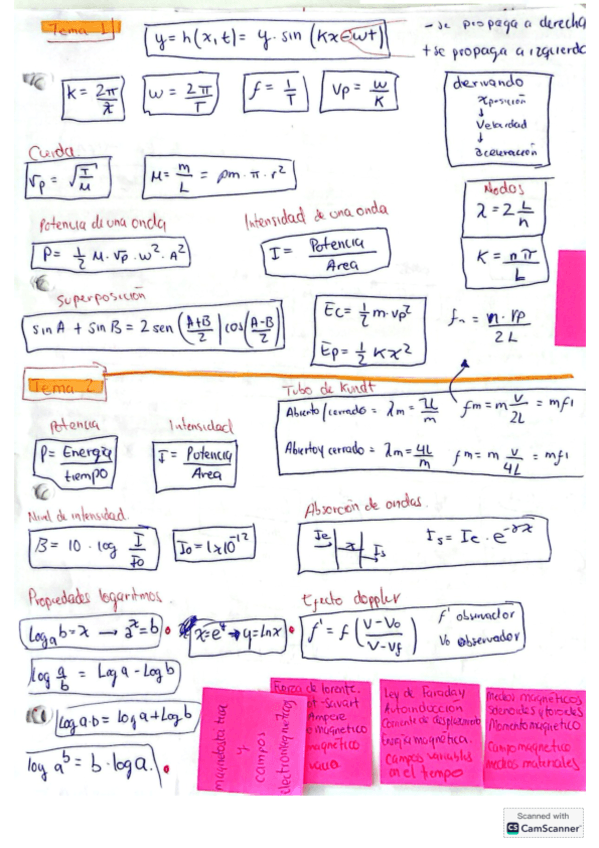 Tema 1
y = h(x,t) = y · sin (kx - wt)
- se propaga a derecha
+ se propaga a izquierda
K = 2π/λ
w = 2π/T
f = 1/T
Vp = w/K
derivando
xposición
↓
Velocidad
↓
aceleración
Cuerda
Vp = √(T/μ)
μ = m/L = ρm · π · r²
Nodos
λ = 2 L/n
K = nπ/L
Potencia de una onda
P = 1/2 μ · vp · w² · A²
Intensidad de una onda
I = Potencia/Area
Superposición
sin A + sin B = 2 sen (A+B/2) cos (A-B/2)
Ec = 1/2 m · vp²
Ep = 1/2 K x²
fn = n · vp/2L
Tema 2
Tubo de Kundt
Abierto/cerrado = λm = 2L/m fm = m V/2L = mf1
Abierto y cerrado = λm = 4L/m fm = m V/4L = mf1
Potencia
P = Energía/tiempo
Intensidad
I = Potencia/Area
Nivel de intensidad
B = 10 · log I/Io
Io = 1x10⁻¹²
Absorción de ondas.
Ie
x
Is
Is = Ie · e^-γx
Propiedades logaritmos.
Log_a b = x → a^x = b
x = e^y → y = ln x
Efecto doppler
f' = f (V - Vo/V - Vf)
f' observador
Vo observador
log a/b = Log a - Log b
Log a·b = log a + Log b
log a^b = b · log a.
magnetostatica
y
campos
electromagneticos
Fuerza de lorente.
ot-Savart
Ampere
o magnetico
magnético
Ley de Faraday
Autoinducción
Corriente de desplazamiento
Energía magnética.
campos variables
en el tiempo
medios magnéticos
Solenoides y toroides
Momento magnetico
Campo magnetico
medios materiales
Scanned with
CS CamScanner